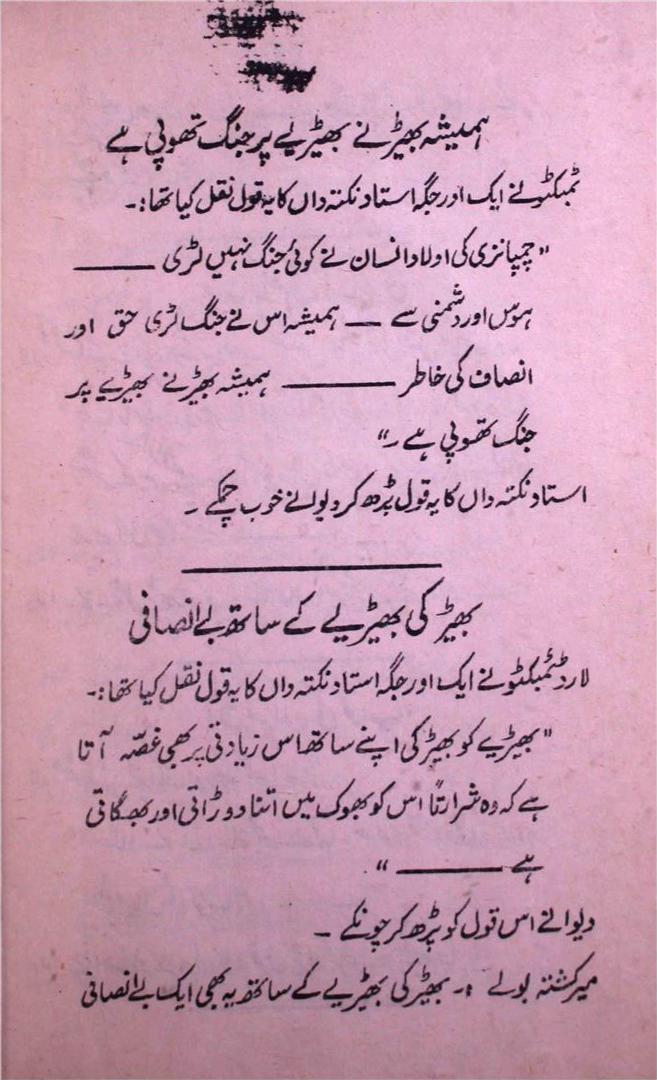 ہمیشہ بھیڑ نے بھیڑیے پر جنگ تھوپی ہے
ٹمبکٹو نے ایک اور جگہ استاد نکتہ داں کا یہ قول نقل کیا تھا:۔
"چمپانزی کی اولاد انسان نے کوئی جنگ نہیں لڑی ———
ہوس اور دشمنی سے — ہمیشہ اس نے جنگ لڑی حق اور
انصاف کی خاطر ——— ہمیشہ بھیڑ نے بھیڑیے پر
جنگ تھوپی ہے۔"
استاد نکتہ داں کا یہ قول پڑھ کر دیوانے خوب چمکے۔
بھیڑ کی بھیڑیے کے ساتھ بے انصافی
لارڈ ٹمبکٹو نے ایک اور جگہ استاد نکتہ داں کا یہ قول نقل کیا تھا:۔
"بھیڑیے کو بھیڑ کی اپنے ساتھ اس زیادتی پر بھی غصّہ آتا
ہے کہ وہ شرارتاً اس کو بھوک میں اتنا دوڑاتی اور بھگاتی
ہے ———"
دیوانے اس قول کو پڑھ کر چونکے۔
میر گشتہ بولے :۔ بھیڑ کی بھیڑیے کے ساتھ یہ بھی ایک بے انصافی